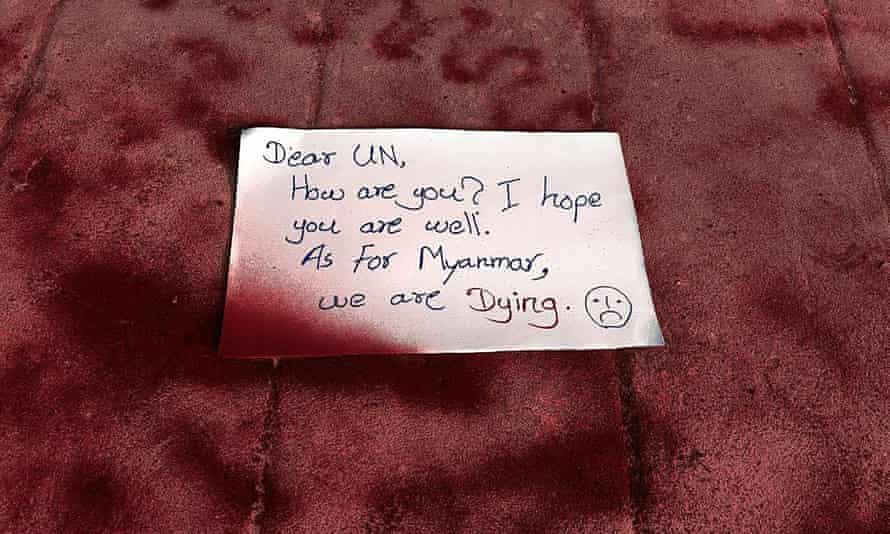 Dear UN,
How are you? I hope
you are well.
As For Myanmar,
we are Dying.